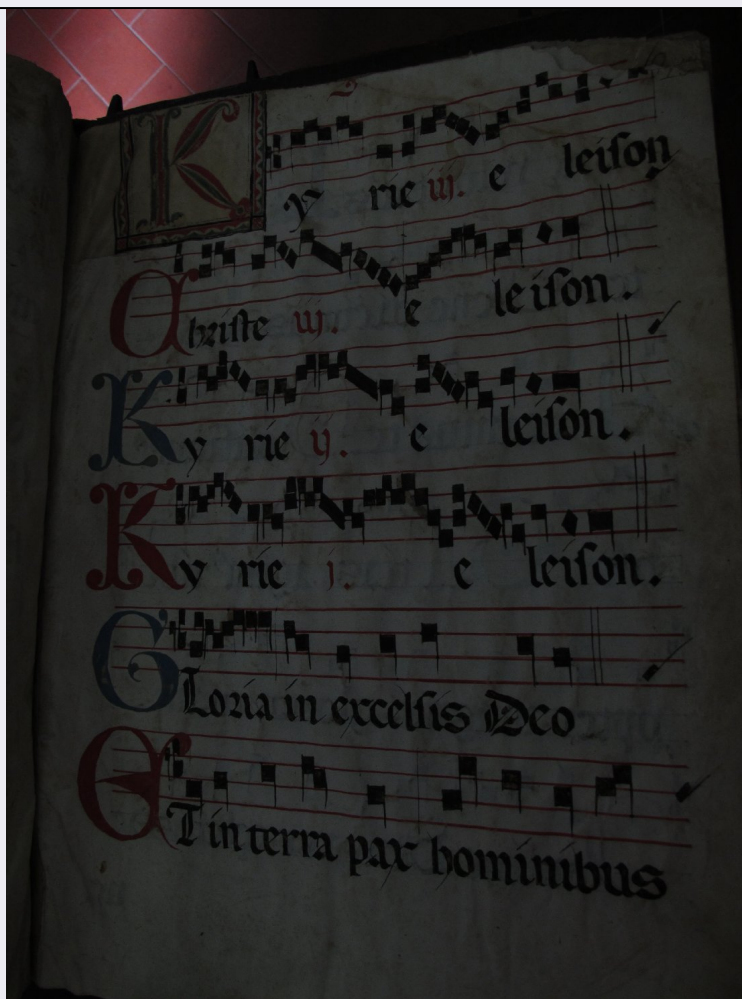 Ky rie iij. e leiſon
Chriſte iij. e leiſon.
Ky rie ij. e leiſon.
Ky rie i. e leiſon.
Gloria in excelſis Deo
ET in terra pax hominibus